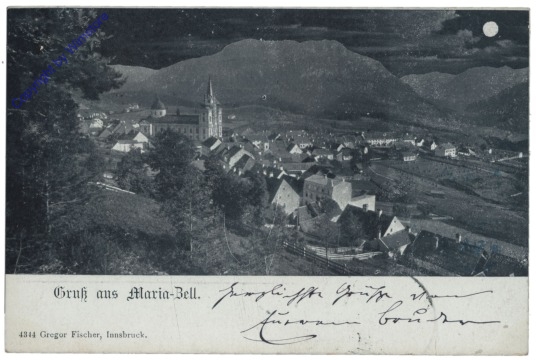 Gruß aus Maria-Zell. herzlichste Grüße von
Eurem bruder
4344 Gregor Fischer, Innsbruck.